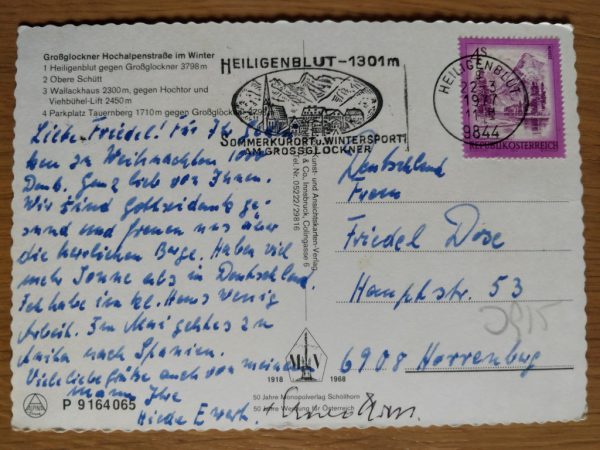 Großglockner Hochalpenstraße im Winter
1 Heiligenblut gegen Großglockner 3798 m
2 Obere Schütt
3 Wallackhaus 2300 m, gegen Hochtor und
Viehbühel-Lift 2450 m
4 Parkplatz Tauernberg 1710 m gegen Großglockner 3798
HEILIGENBLUT-1301m
SOMMERKURORT u. WINTERSPORT
AM GROSSGLOCKNER
HEILIGENBLUT
1977
9844
4S
REPUBLIK ÖSTERREICH
Liebe Friedel! Für Ihr
zu Weihnachten
Dank. Ganz lieb von Ihnen.
Wir sind Gottseidank ge-
sund und freuen uns über
die herrlichen Berge. Haben viel
mehr Sonne als in Deutschland.
Ich habe im kl. Haus wenig
Arbeit. Im Mai geht es zu
nach Spanien.
Viele liebe Grüße auch von meinem
Mann Ihre
Deutschland
Friedel Dose
Hauptstr. 53
6908
Kunst- und Ansichtskarten-Verlag
& Co., Innsbruck, Collingasse 6
Tel. Nr. 05222/29816
MSV
1918 1968
50 Jahre Monopolverlag Schöllhorn
50 Jahre Werbung für Österreich
P 9164065